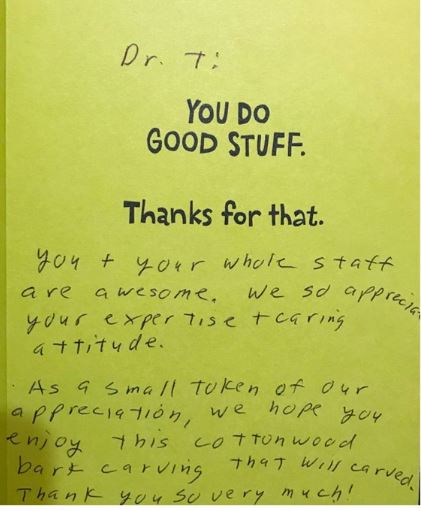 Dr. T:
YOU DO
GOOD STUFF.
Thanks for that.
You + your whole staff
are awesome. We so apprecia
your expertise + caring
attitude.
As a small token of our
appreciation, we hope you
enjoy this cottonwood
bark carving that Will carved.
Thank you so very much!